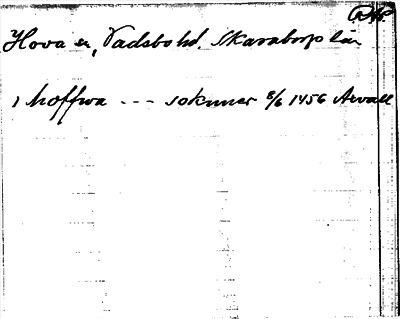 Hova sn, Vadsbo hd. Skaraborgs län
i hoffwa --- soknner 8/6 1456 Arvall